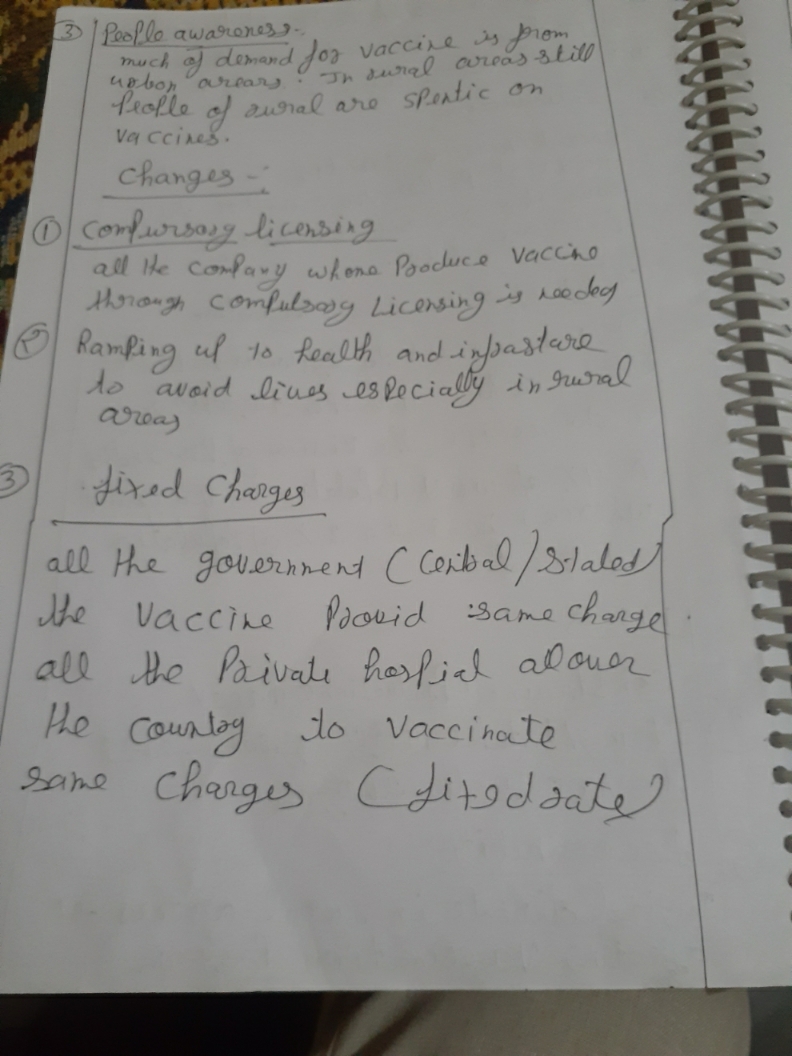 ③ People awareness:-
much of demand for vaccine is from
urban arears. In rural areas still
People of rural are speptic on
vaccines.
Changes -:
① Compursary licensing
all the company whone Produce vaccine
through compulsory Licensing is needed
② Ramping up to health and infrastare
to avoid lives especially in rural
areas
③ fixed Charges
all the government (Central/stated)
the vaccine Provid same charge
all the Private hospial allover
the country to vaccinate
same charges (fixed rate)